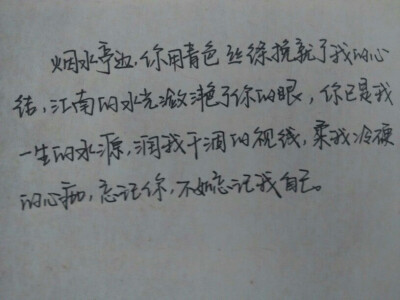 烟水亭边,你用青色丝绦挽就了我的心
结,江南的水光潋滟了你的眼,你已是我
一生的水源,润我干涸的视线,柔我冷硬
的心痂,忘记你,不如忘记我自己。